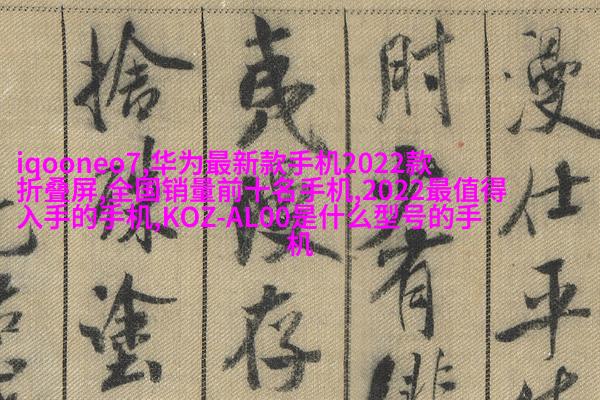 iqooneo7,华为最新款手机2022款
折叠屏,全国销量前十名手机,2022最值得
入手的手机,KOZ-AL00是什么型号的手
机
漫仕平
肘少有俳
夷漫存
捨殊塗